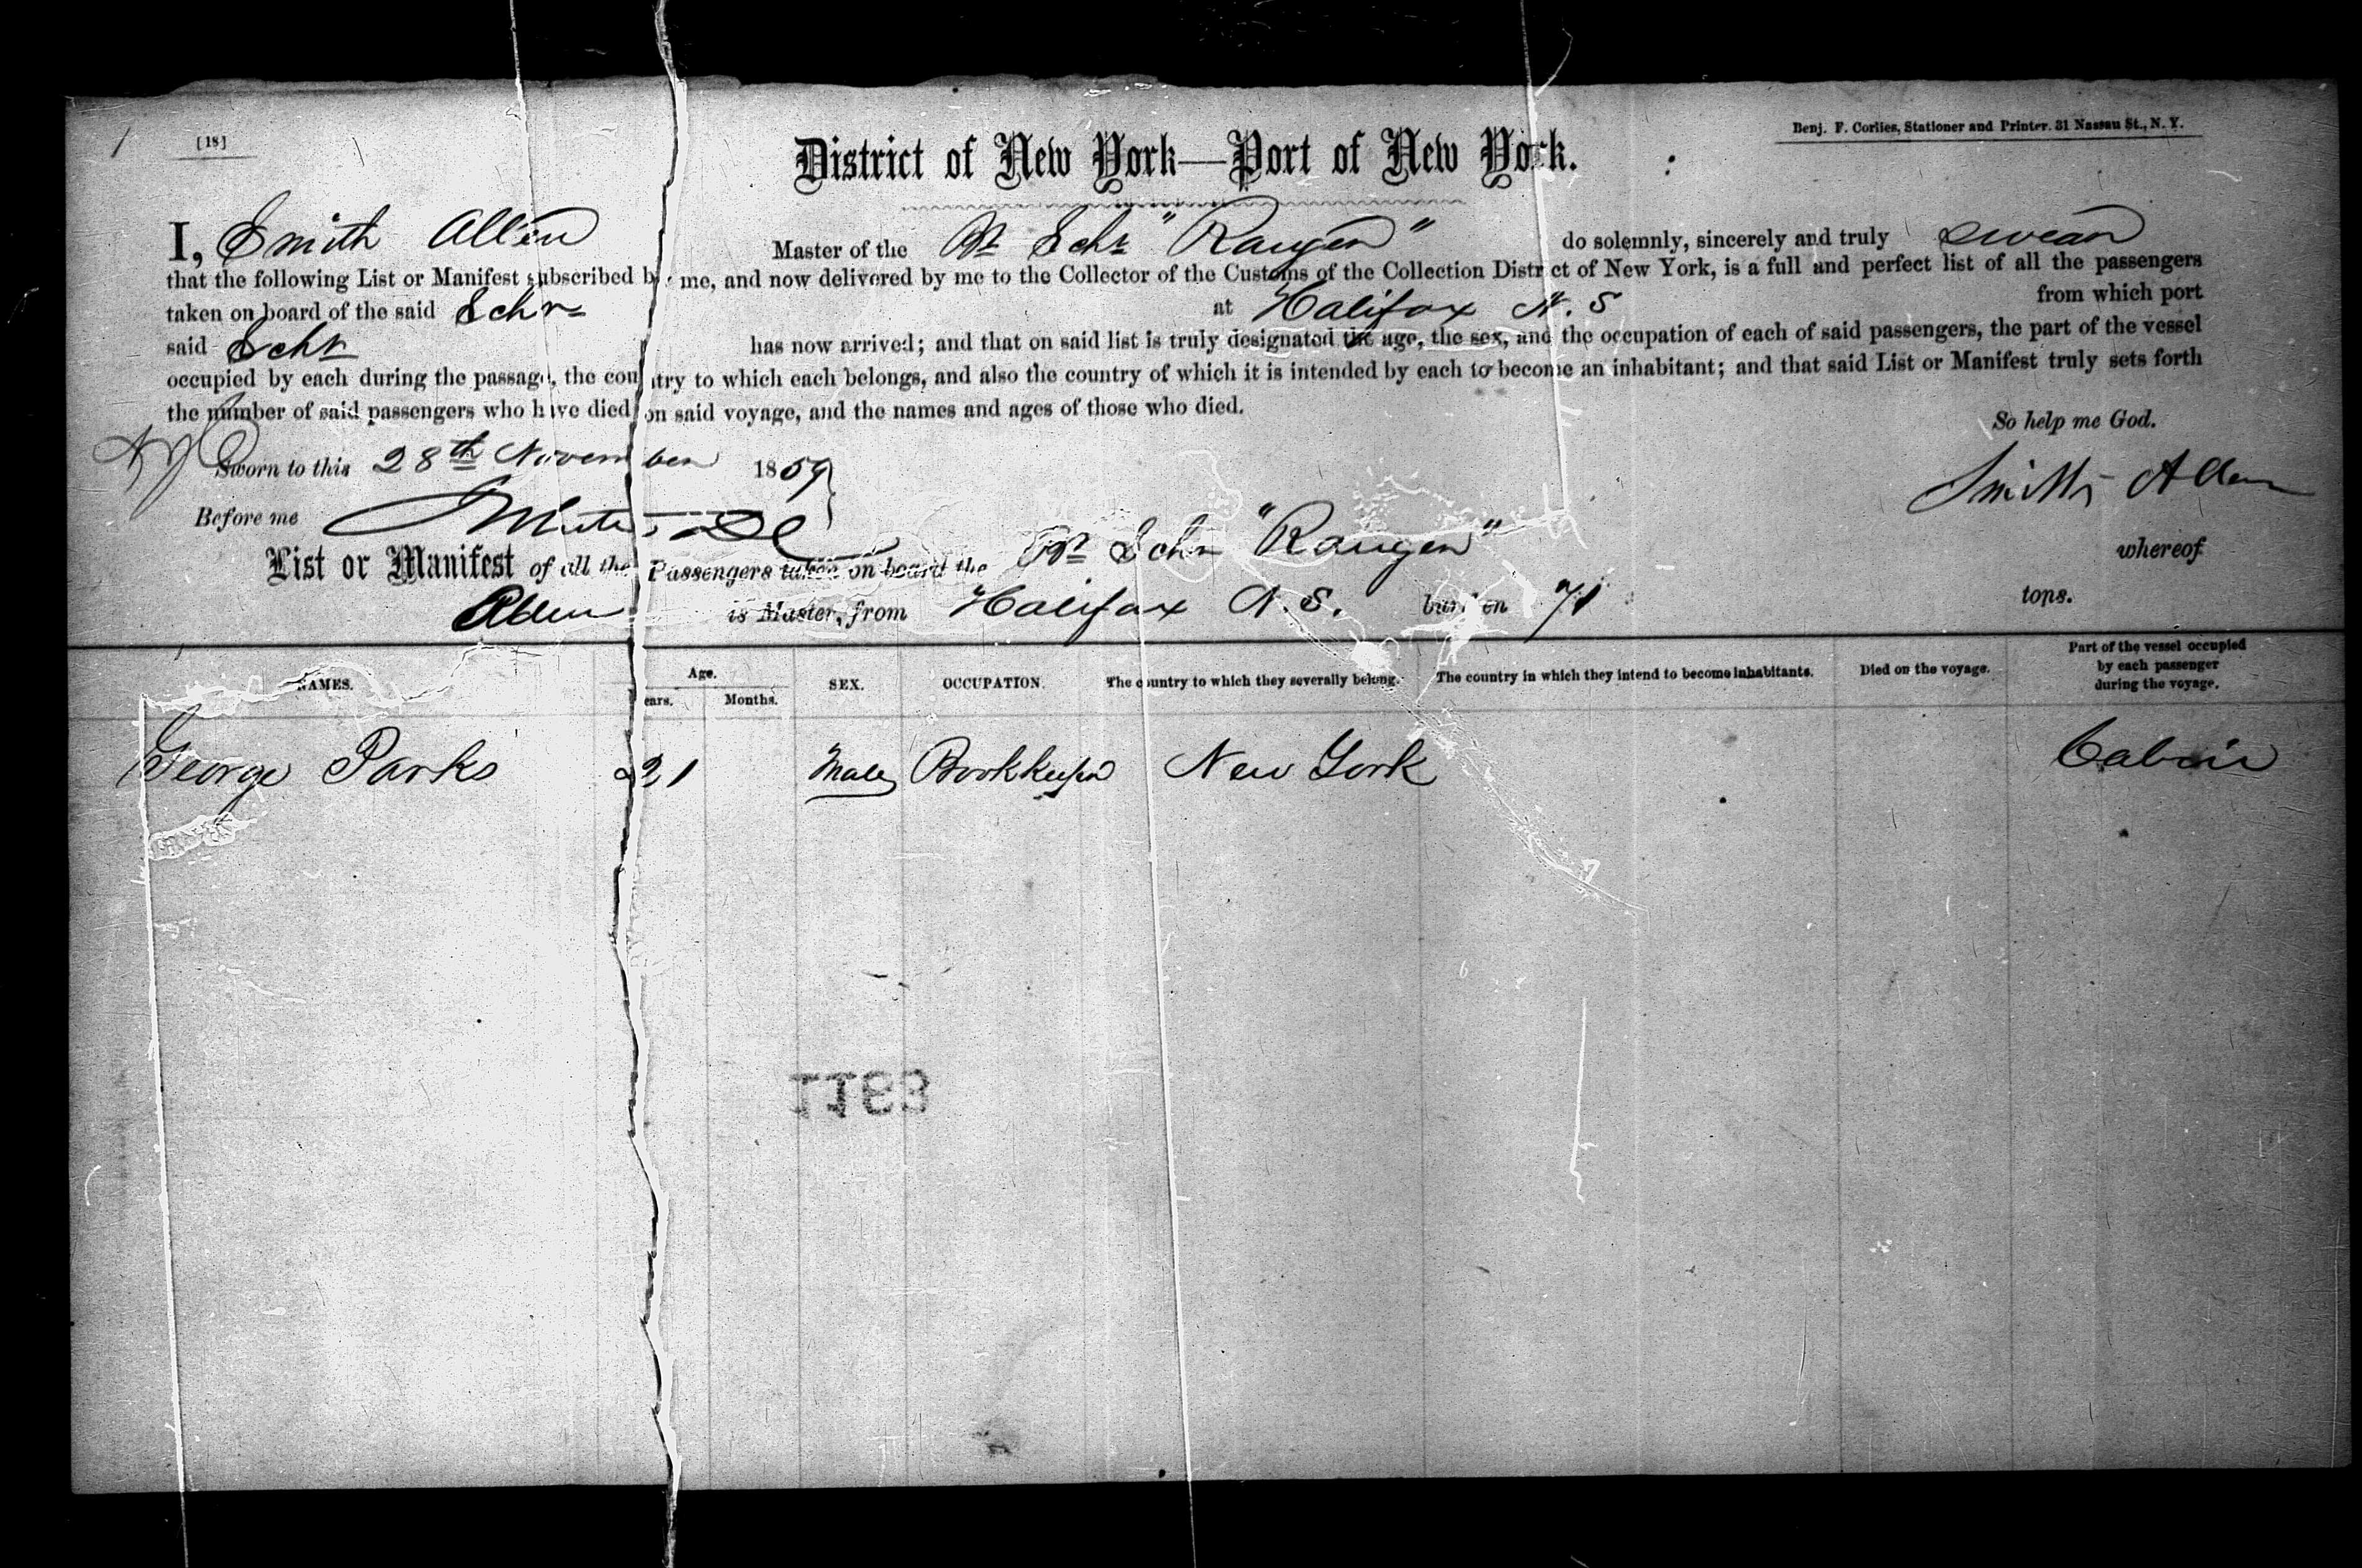 1
[18]
Benj. F. Corlies, Stationer and Printer. 31 Nassau St., N. Y.
District of New York—Port of New York.
I, Smith Allen Master of the Br Schr "Ranger" do solemnly, sincerely and truly swear
that the following List or Manifest subscribed by me, and now delivered by me to the Collector of the Customs of the Collection District of New York, is a full and perfect list of all the passengers
taken on board of the said Schr at Halifax N. S from which port
said Schr has now arrived; and that on said list is truly designated the age, the sex, and the occupation of each of said passengers, the part of the vessel
occupied by each during the passage, the country to which each belongs, and also the country of which it is intended by each to become an inhabitant; and that said List or Manifest truly sets forth
the number of said passengers who have died on said voyage, and the names and ages of those who died.
So help me God.
Sworn to this 28th November 1859
Smith Allen
Before me
List or Manifest of all the Passengers taken on board the Br Schr "Ranger" whereof
Allen is Master, from Halifax N. S. burthen 71 tons.
NAMES. Age. Years. Months. SEX. OCCUPATION. The country to which they severally belong. The country in which they intend to become inhabitants. Died on the voyage. Part of the vessel occupied by each passenger during the voyage.
George Parks 21 Male Bookkeeper New York Cabin
1163